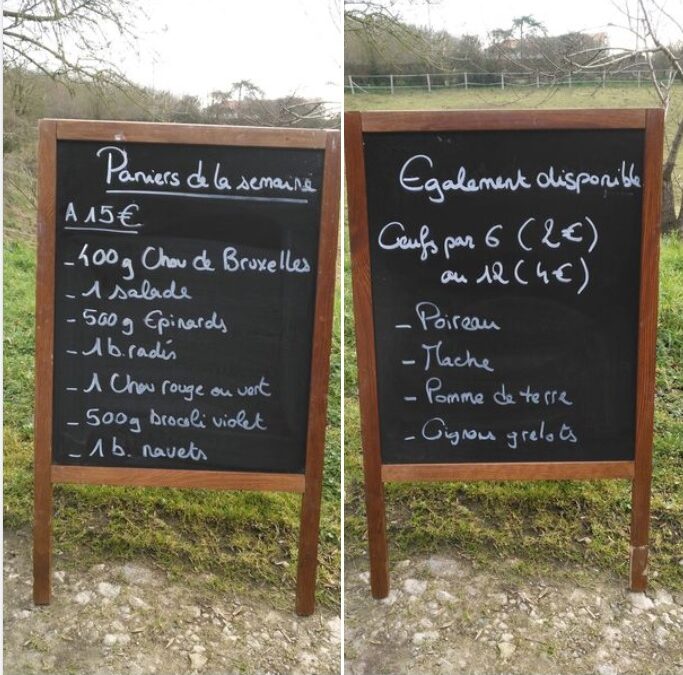 Paniers de la semaine
A 15€
- 400g Chou de Bruxelles
- 1 salade
- 500g Epinards
- 1 b. radis
- 1 Chou rouge ou vert
- 500g brocoli violet
- 1 b. navets
Egalement disponible
Oeufs par 6 (2€)
ou 12 (4€)
- Poireau
- Mache
- Pomme de terre
- Oignons grelots